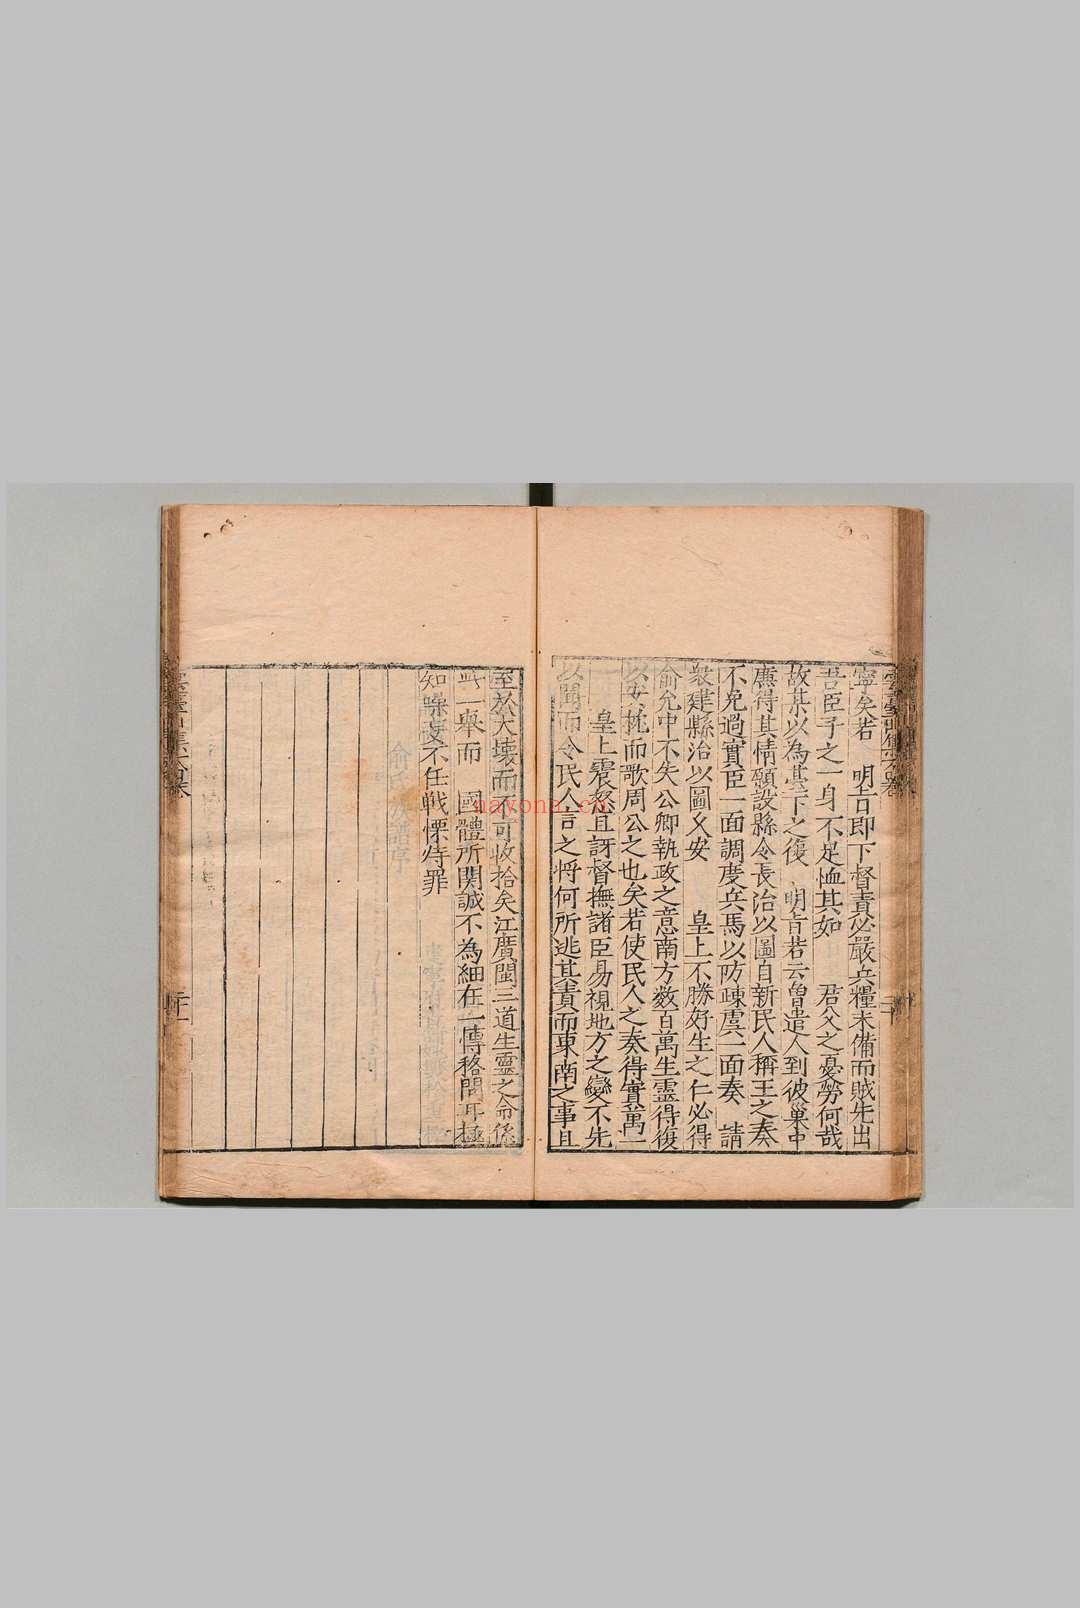 寧矣若 明旨即下督責必嚴兵糧未備而賊先出
吾臣子之一身不足恤其如 君父之憂勞何哉
故某以為臺下之復 明旨若云曾遣人到彼巢中
廉得其情願設縣令長治以圖自新民人稱王之奏
不免過實臣一面調度兵馬以防疎虞一面奏 請
衆建縣治以圖乂安 皇上不勝好生之仁必得
俞允中不失公卿執政之意南方数百萬生靈得復
以安枕而歌周公之也矣若使民人之奏得實萬一
皇上震怒且訝督撫諸臣易視地方之變不先
以聞而令民人言之将何所逃其責而東南之事且
至於大壊而不可收拾矣江廣閩三道生靈之命係
此一舉而 國體所関誠不為細在一傳移間耳極
知噪妄不任戰慄待罪
nayona.cn